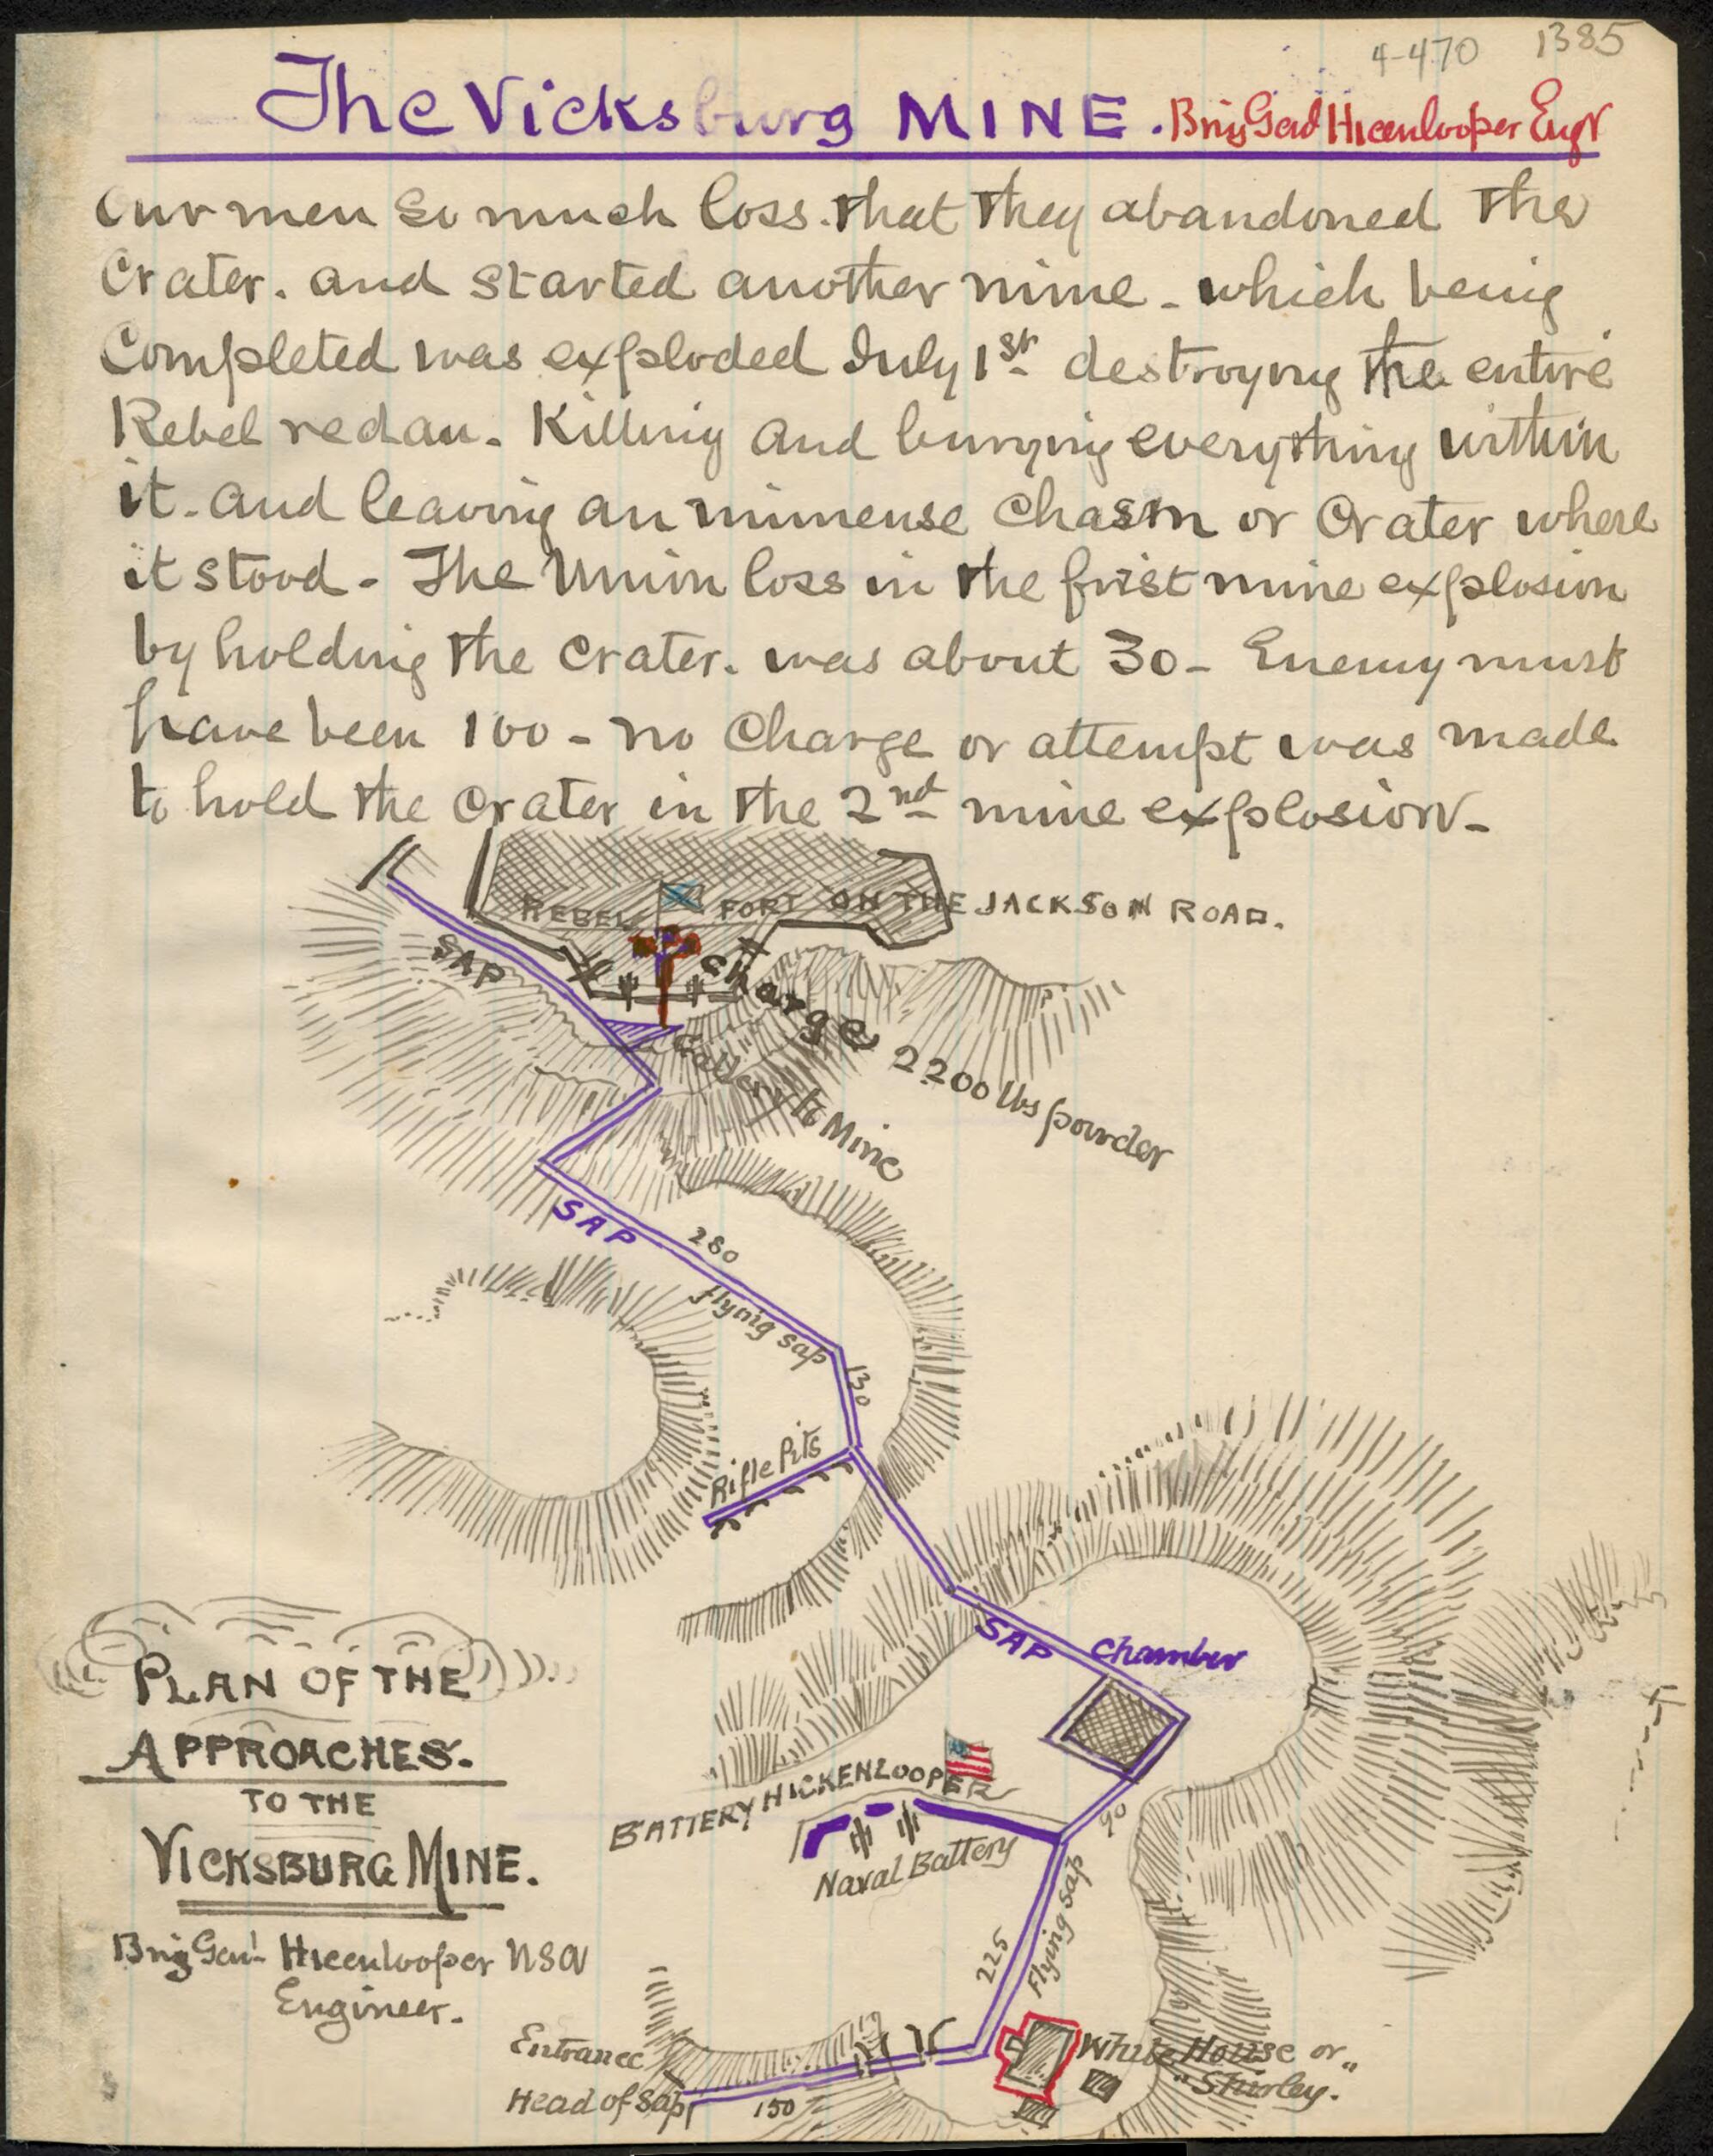 4-470 1385
The Vicksburg MINE. Brig Genl Hicenlooper Engr
Our men so much loss. that they abandoned the
Crater. and started another mine - which being
Completed was exploded July 1st destroying the entire
Rebel redan. Killing and burying everything within
it. and leaving an immense Chasm or Crater where
it stood - The Union loss in the first mine explosion
by holding the crater. was about 30 - Enemy must
have been 100 - no Charge or attempt was made
to hold the Crater in the 2nd mine explosion -
REBEL FORT ON THE JACKSON ROAD.
SAP
Charge 2200 lbs powder
Gallery to Mine
SAP
280
flying sap
130
Rifle Pits
SAP
Chamber
PLAN OF THE
APPROACHES.
TO THE
VICKSBURG MINE.
Brig Genl- Hicenlooper USV
Engineer.
BATTERY HICKENLOOPER
Naval Battery
90
Flying sap
225
Entrance
Head of Sap
150
White House or
"Shirley."